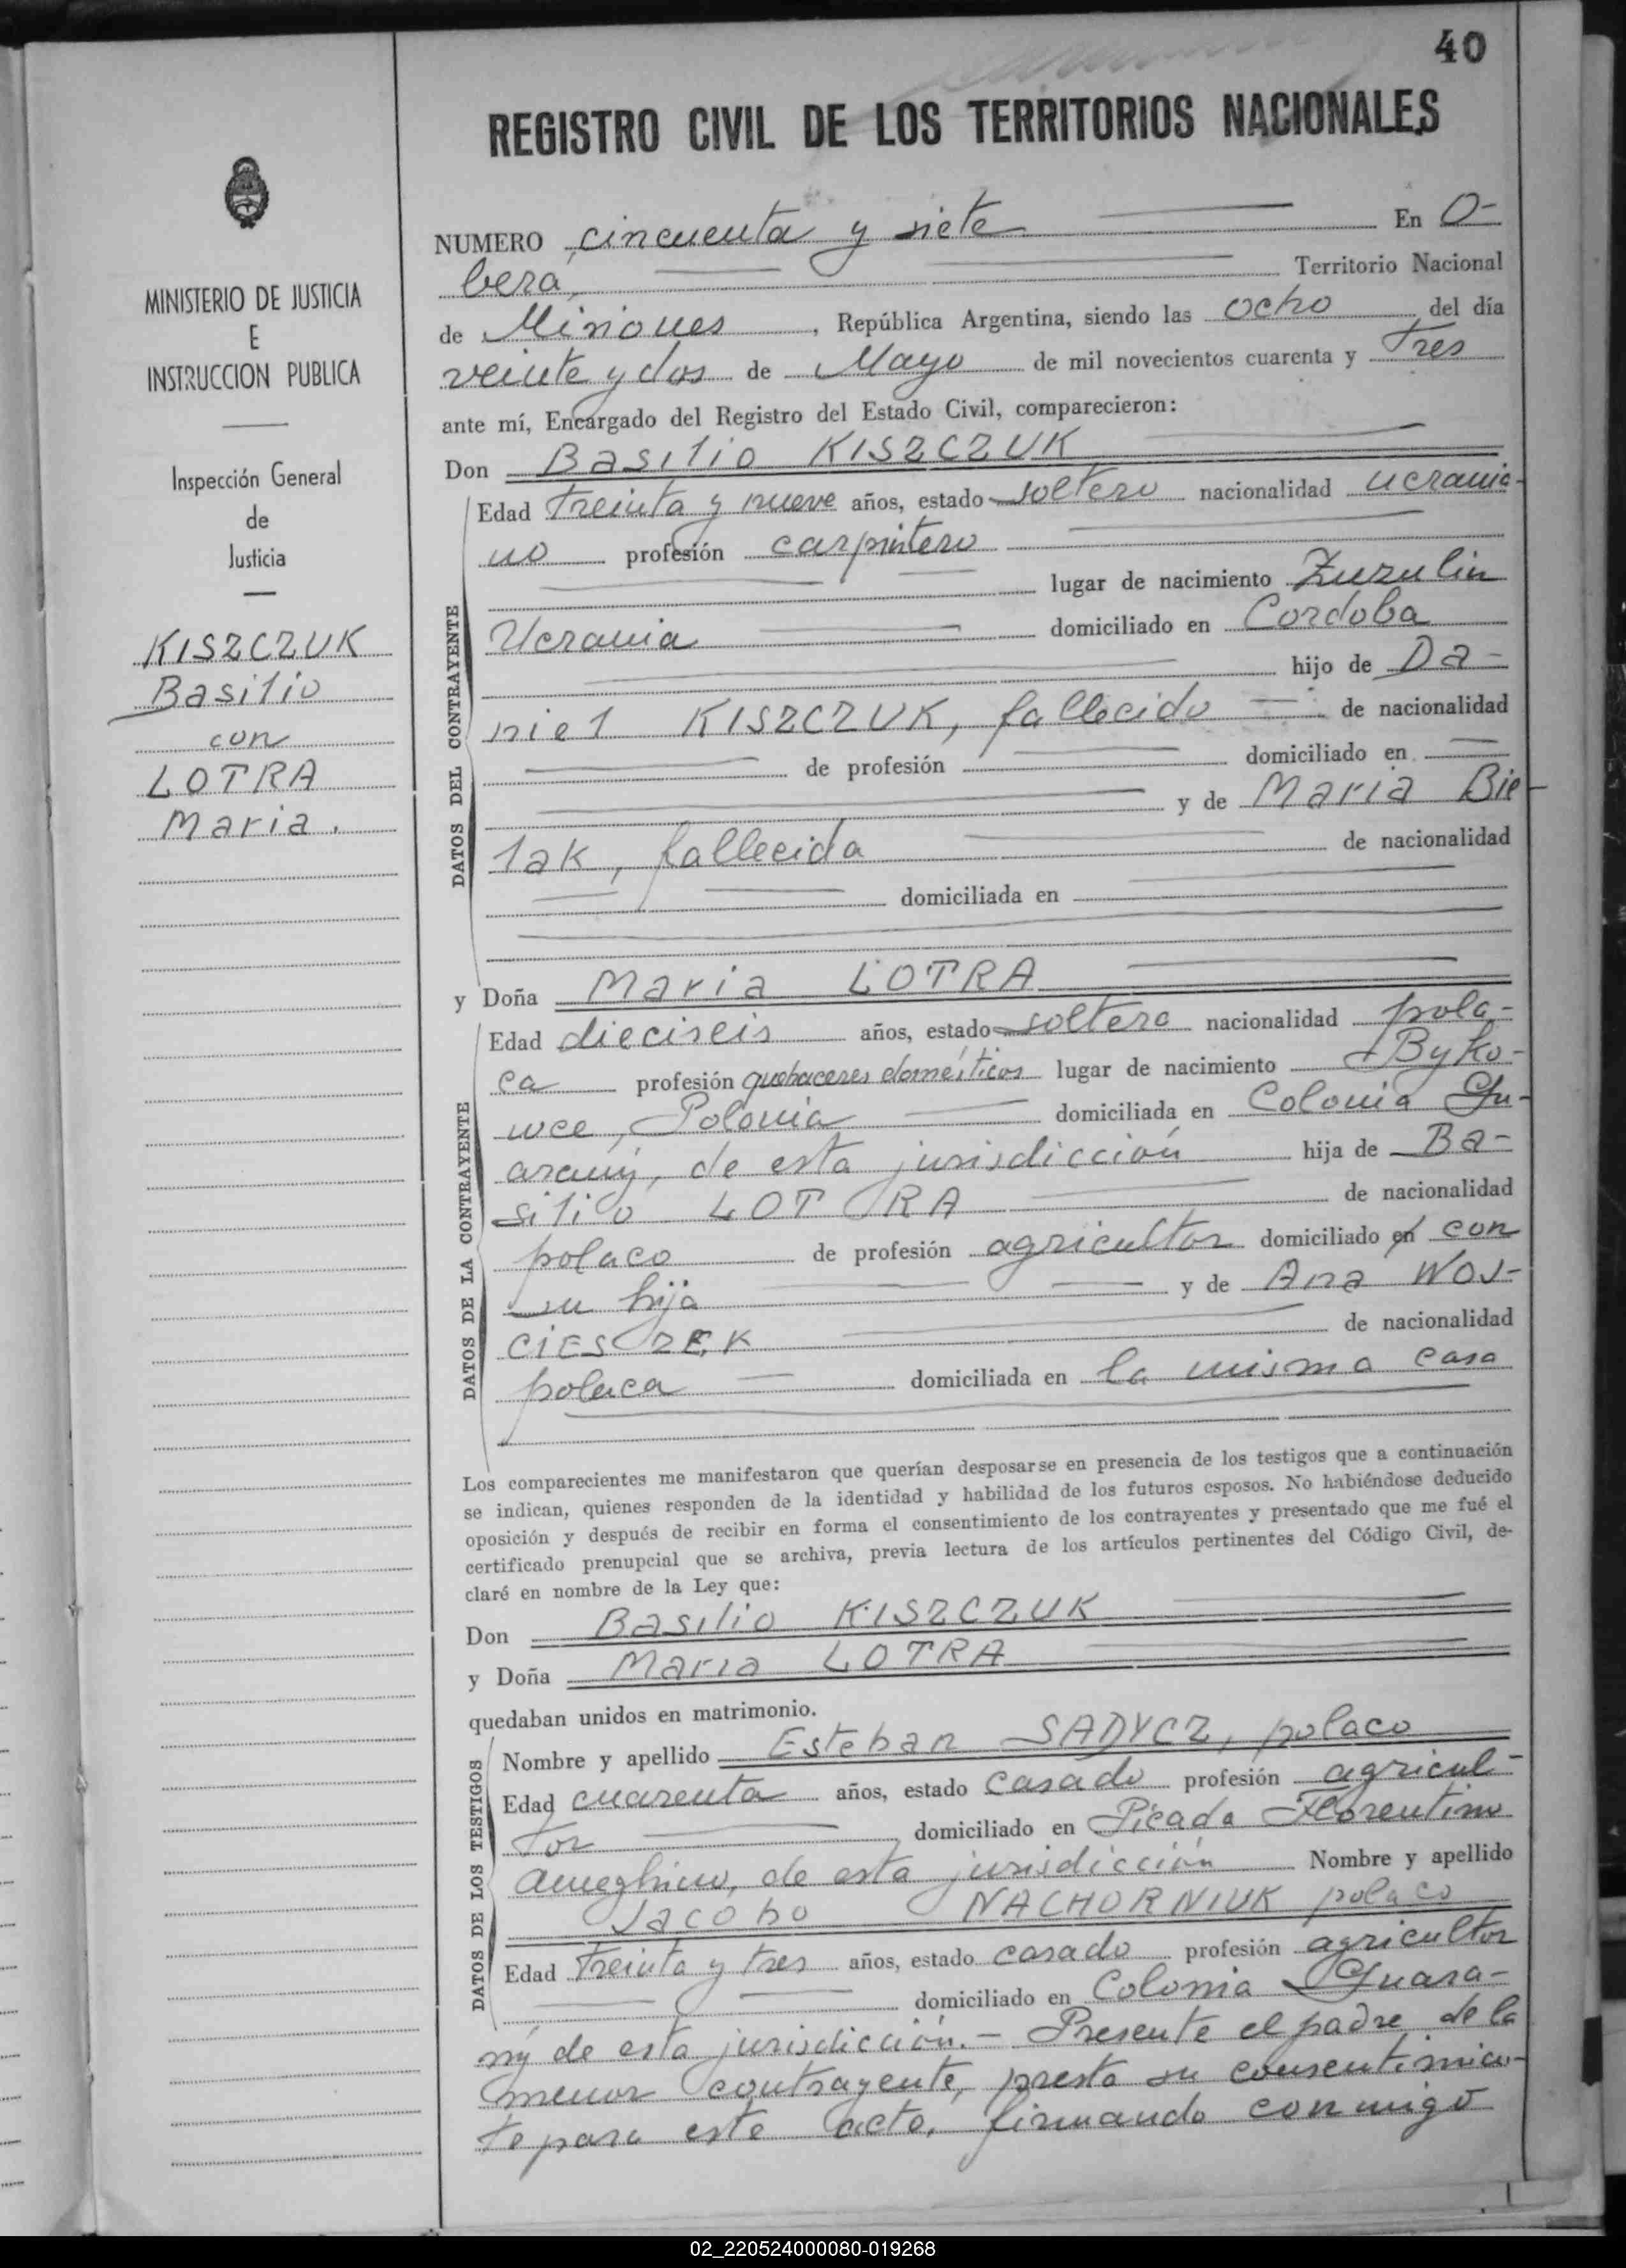 40
REGISTRO CIVIL DE LOS TERRITORIOS NACIONALES
MINISTERIO DE JUSTICIA
E
INSTRUCCION PUBLICA
Inspección General
de
Justicia
KISZCZUK
Basilio
con
LOTRA
Maria.
NUMERO cincuenta y siete En O-
berá, Territorio Nacional
de Misiones, República Argentina, siendo las ocho del día
veinte y dos de Mayo de mil novecientos cuarenta y Tres
ante mí, Encargado del Registro del Estado Civil, comparecieron:
Don Basilio KISZCZUK
DATOS DEL CONTRAYENTE
Edad treinta y nueve años, estado soltero nacionalidad ucrania-
no profesión carpintero
lugar de nacimiento Zuzulin
Ucrania domiciliado en Cordoba
hijo de Da-
niel KISZCZUK, fallecido de nacionalidad
de profesión domiciliado en
y de Maria Bie-
lak, fallecida de nacionalidad
domiciliada en
y Doña Maria LOTRA
DATOS DE LA CONTRAYENTE
Edad dieciseis años, estado soltera nacionalidad pola-
ca profesión quehaceres domésticos lugar de nacimiento Byko-
wce, Polonia domiciliada en Colonia Gu-
arany, de esta jurisdicción hija de Ba-
silio LOTRA de nacionalidad
polaco de profesión agricultor domiciliado en con
su hija y de Ana WOJ-
CIESZEK de nacionalidad
polaca domiciliada en la misma casa
Los comparecientes me manifestaron que querían desposarse en presencia de los testigos que a continuación
se indican, quienes responden de la identidad y habilidad de los futuros esposos. No habiéndose deducido
oposición y después de recibir en forma el consentimiento de los contrayentes y presentado que me fué el
certificado prenupcial que se archiva, previa lectura de los artículos pertinentes del Código Civil, de-
claré en nombre de la Ley que:
Don Basilio KISZCZUK
y Doña Maria LOTRA
quedaban unidos en matrimonio.
DATOS DE LOS TESTIGOS
Nombre y apellido Esteban SADYCZ, polaco
Edad cuarenta años, estado casado profesión agricul-
tor domiciliado en Picada Florentino
Ameghino, de esta jurisdicción Nombre y apellido
Jacobo NACHORNIUK polaco
Edad Treinta y tres años, estado casado profesión agricultor
domiciliado en Colonia Guara-
ny de esta jurisdicción.- Presente el padre de la
menor contrayente, presta su consentimien-
to para este acto, firmando conmigo
02_220524000080-019268